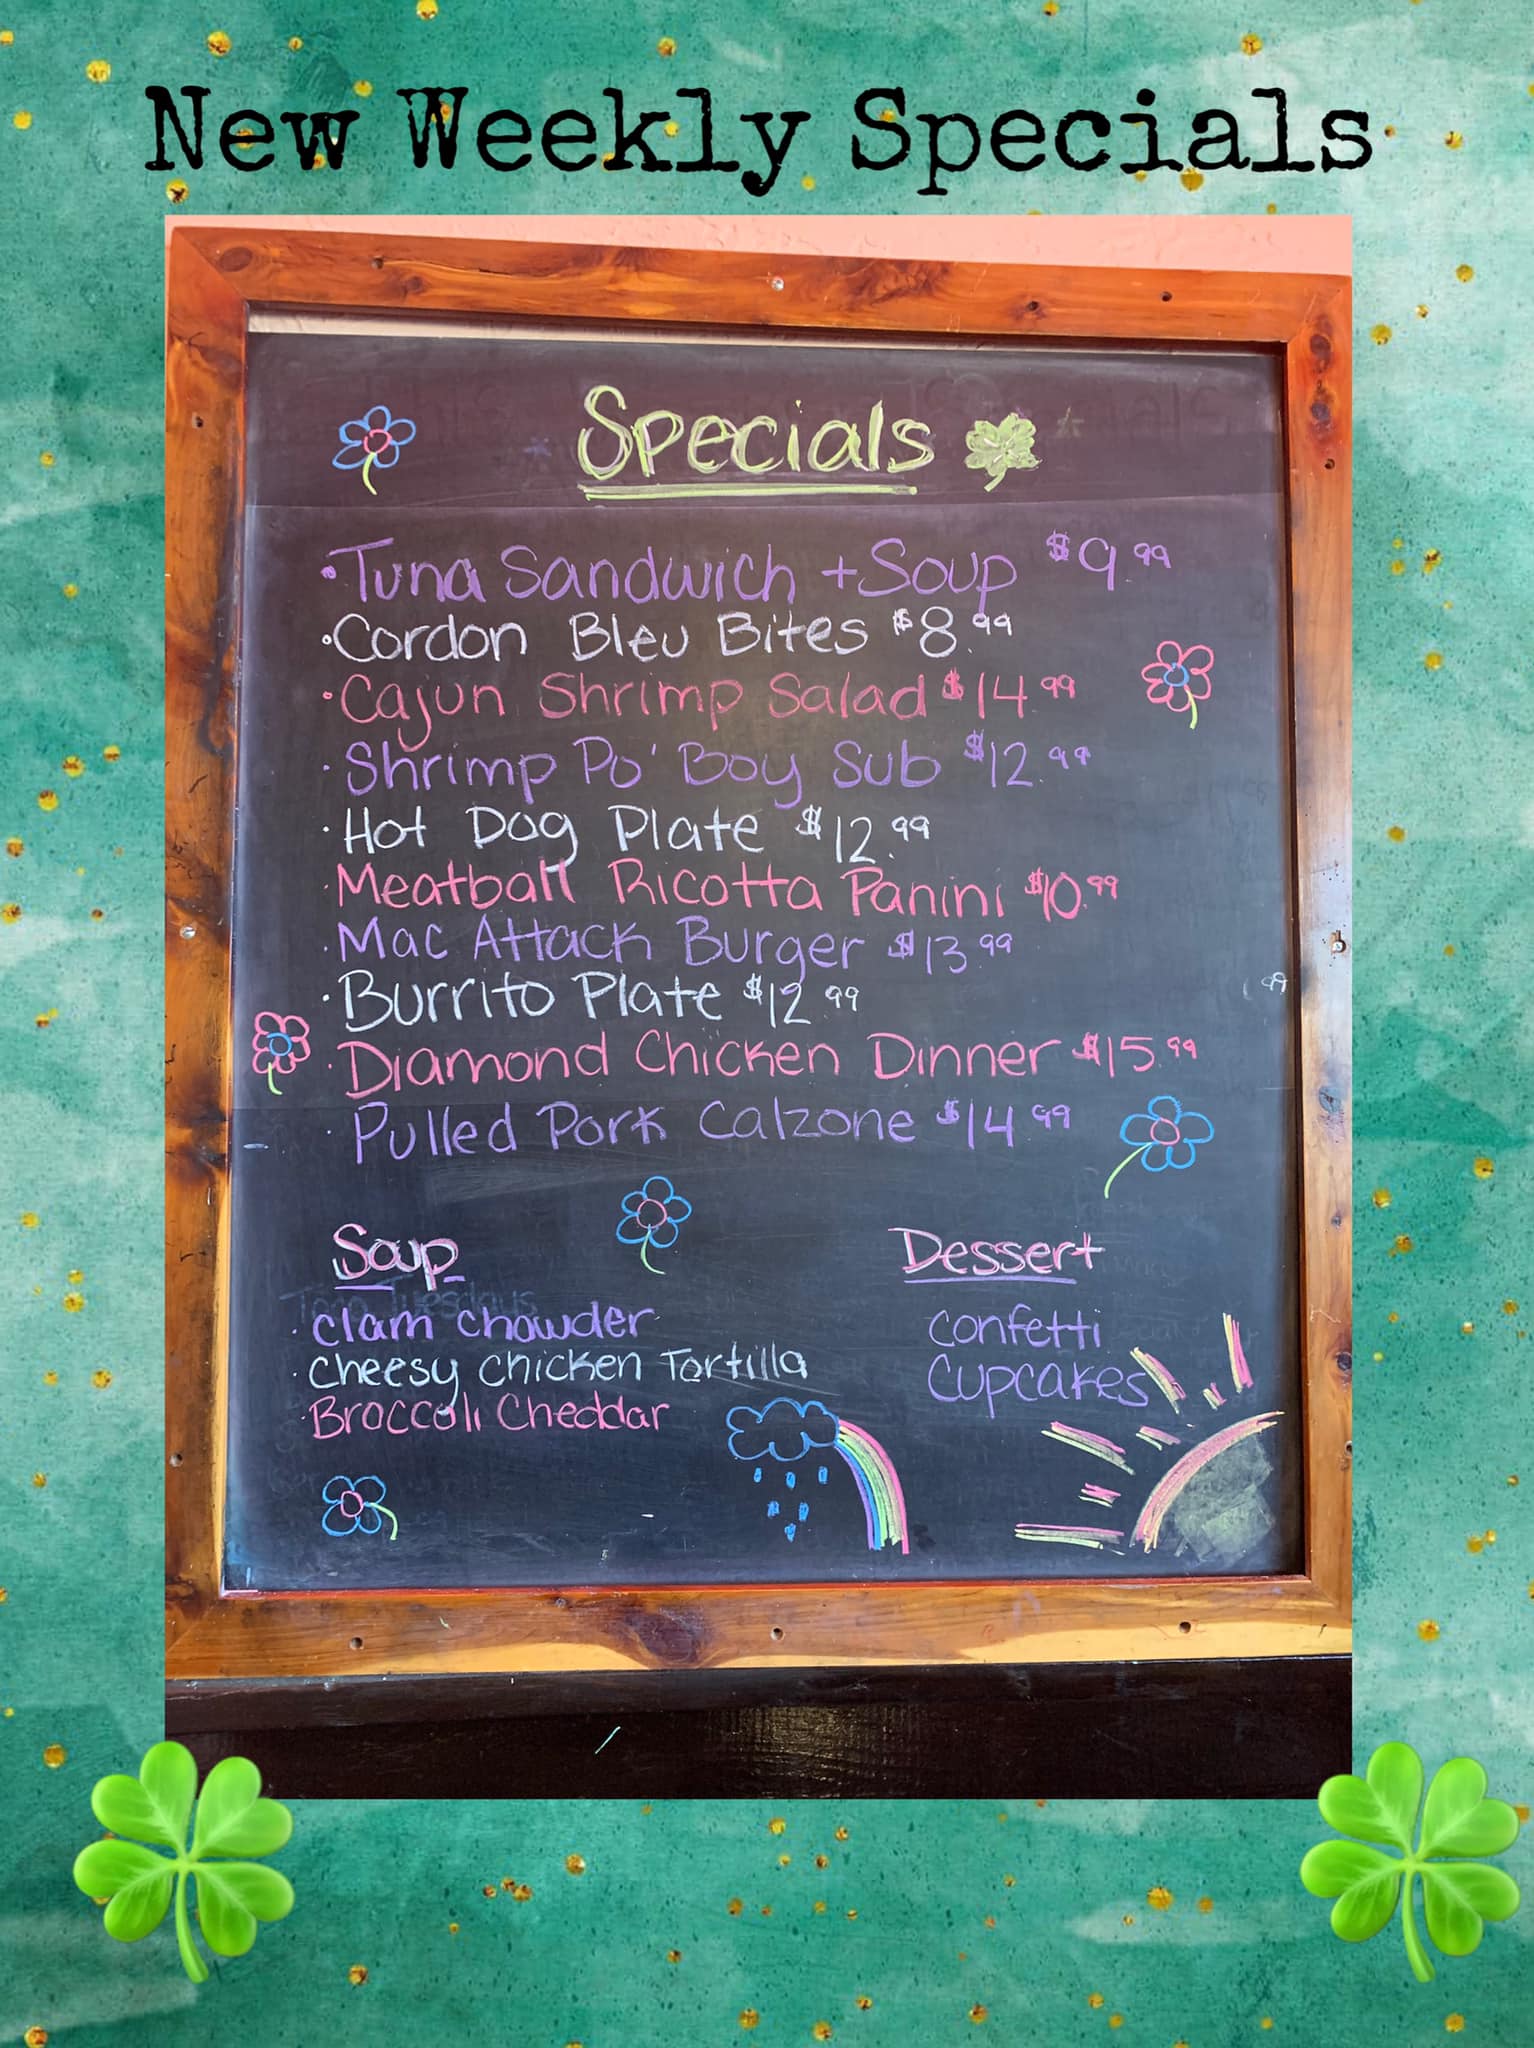 New Weekly Specials
Specials
• Tuna Sandwich + Soup $9.99
• Cordon Bleu Bites $8.99
• Cajun Shrimp Salad $14.99
• Shrimp Po' Boy Sub $12.99
• Hot Dog Plate $12.99
• Meatball Ricotta Panini $10.99
• Mac Attack Burger $13.99
• Burrito Plate $12.99
• Diamond Chicken Dinner $15.99
• Pulled Pork Calzone $14.99
Soup
• Clam Chowder
• Cheesy Chicken Tortilla
• Broccoli Cheddar
Dessert
Confetti
Cupcakes